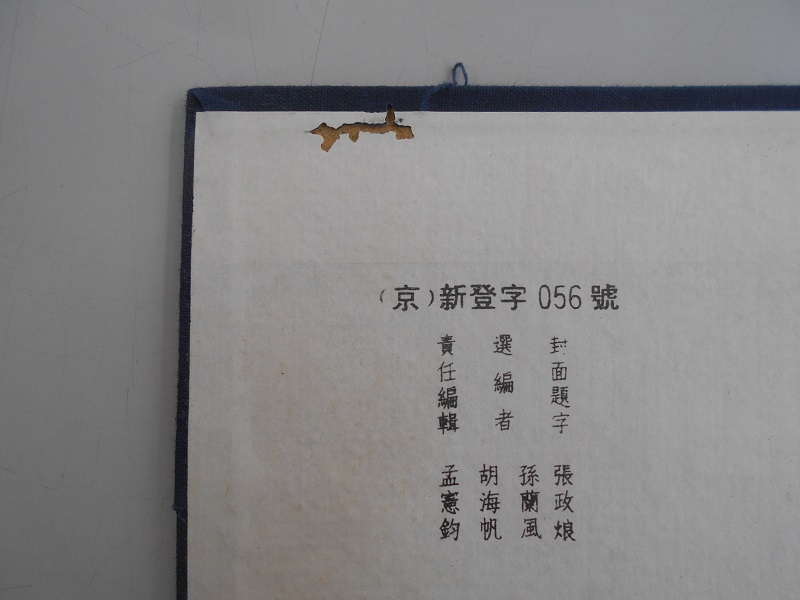 （京）新登字056號
封面題字 張政烺
選編者 孫蘭風
胡海帆
責任編輯 孟憲鈞